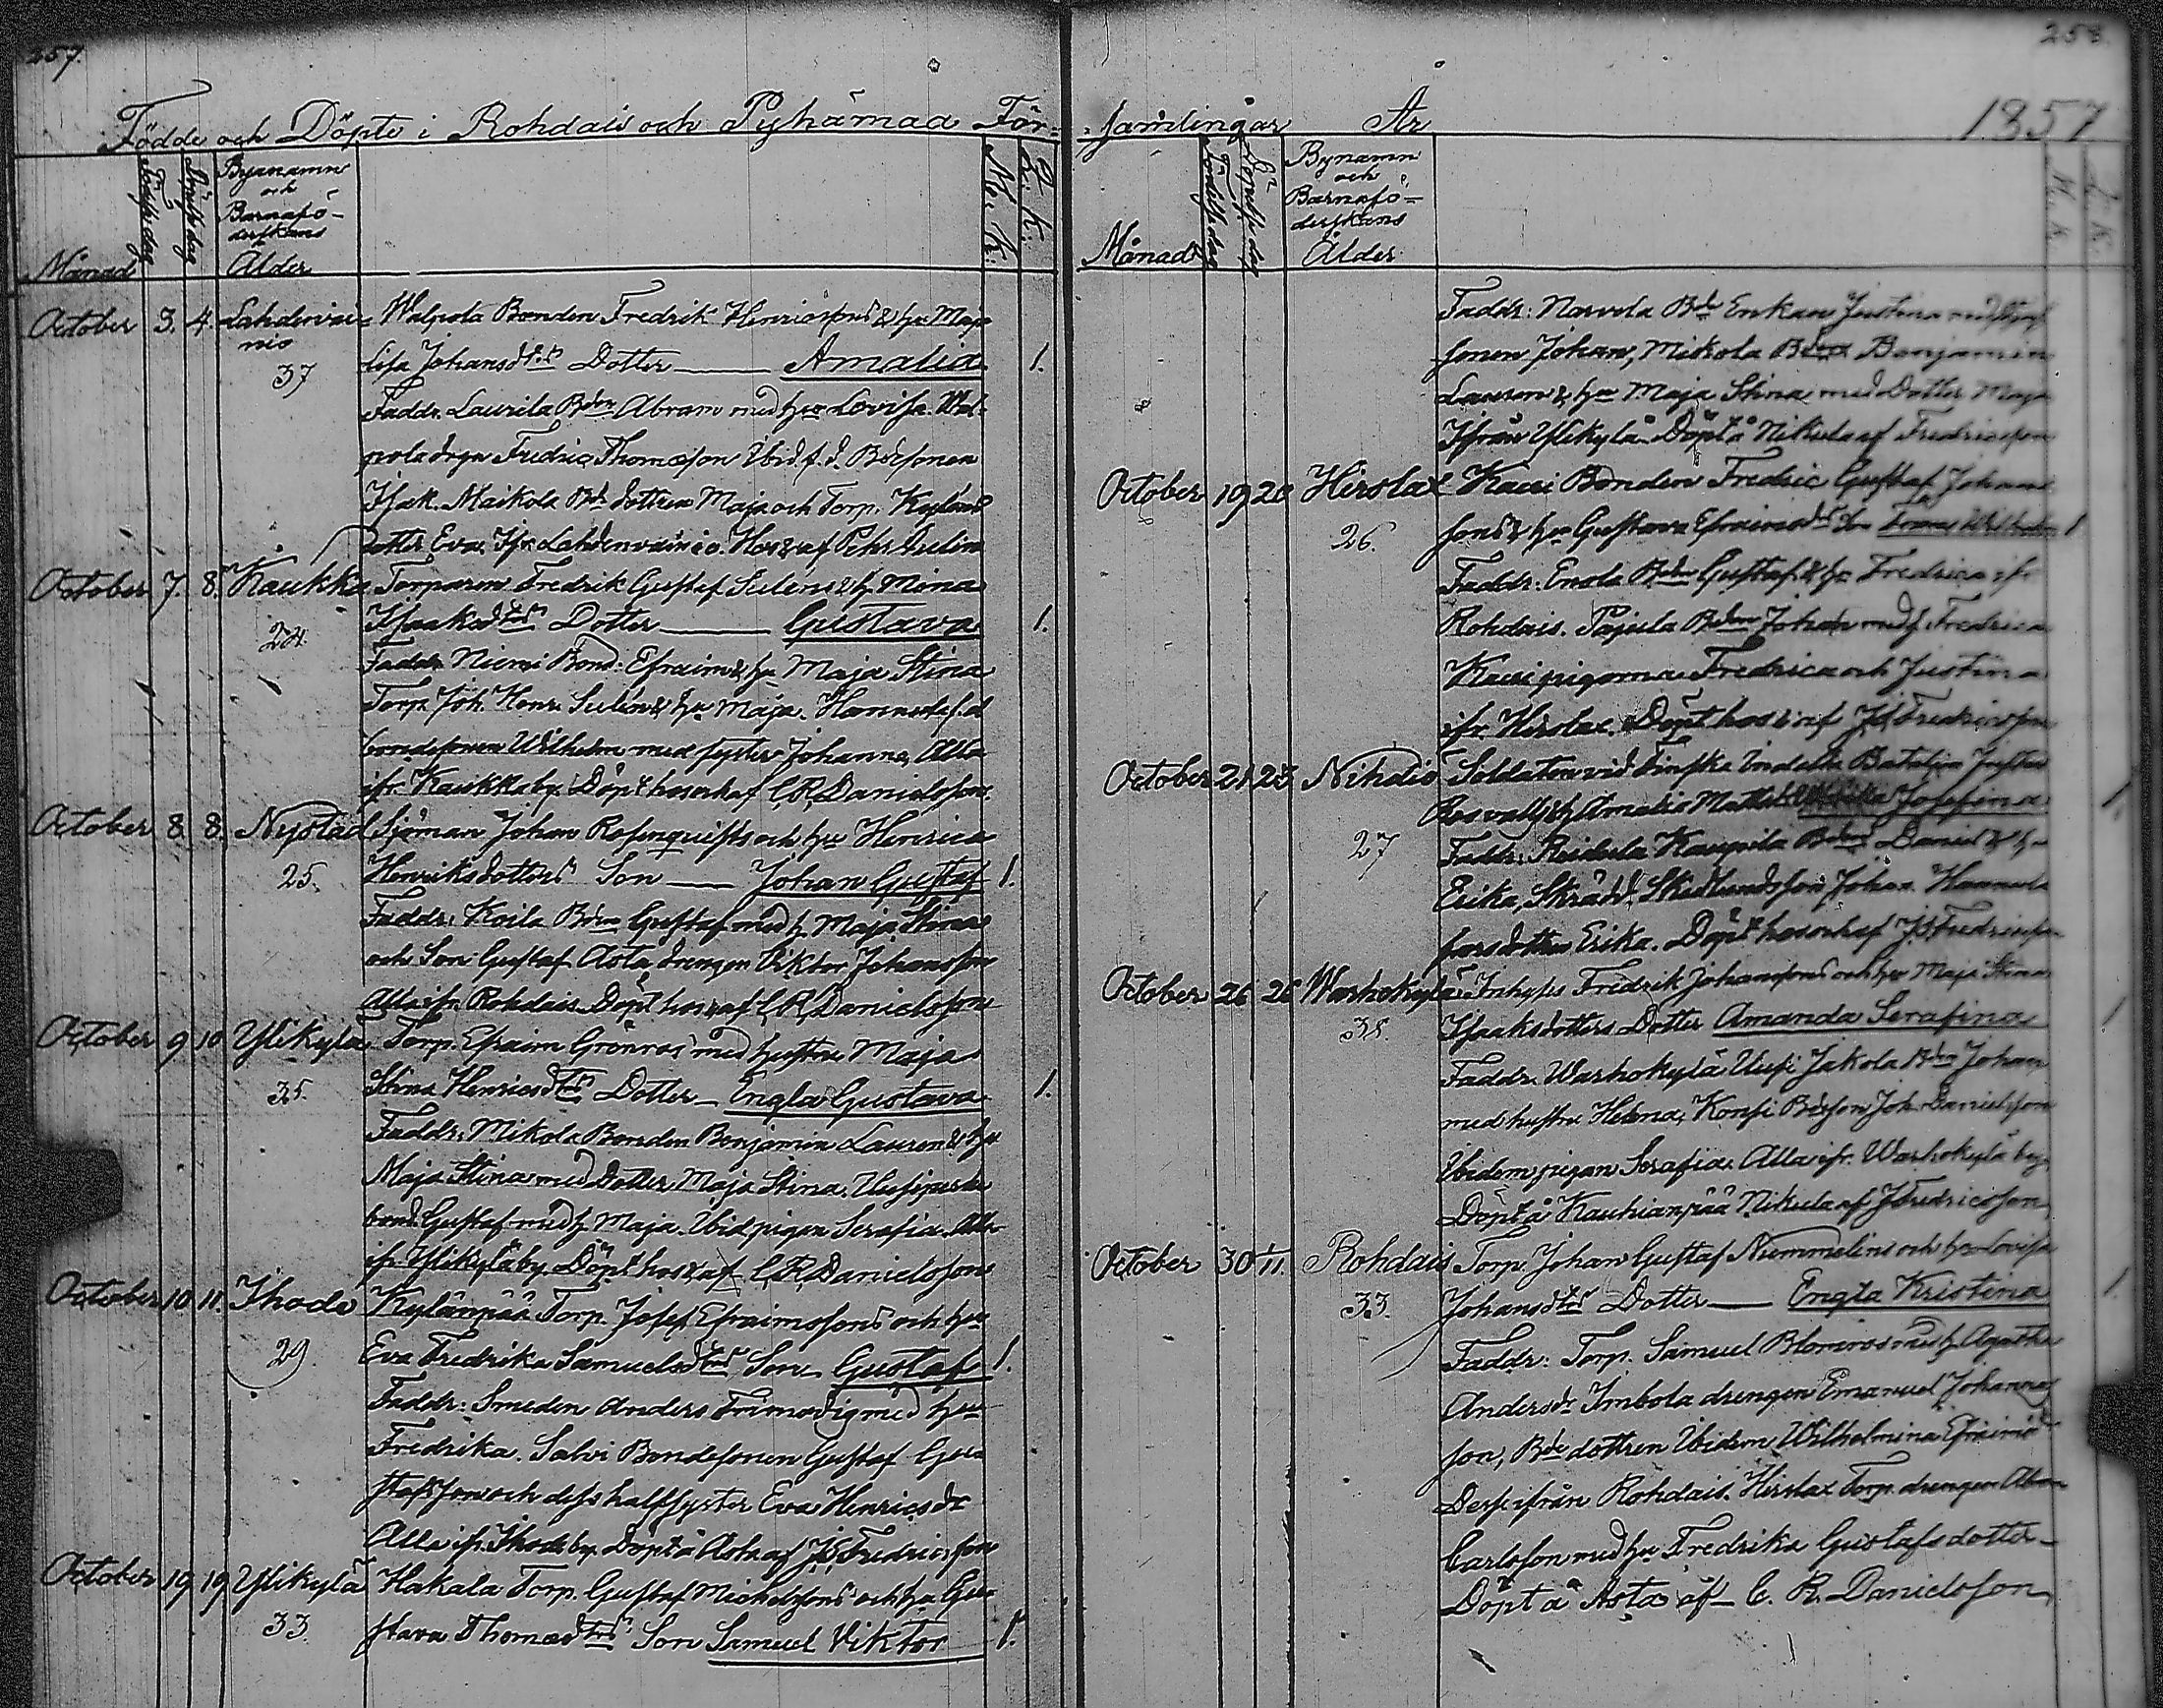 257.
Födde och Döpte i Rohdais och Pyhämaa För=
Månad
Födelse dag
Döpelse dag
Byanamn
och
Barnafö-
derskans
Ålder
M. K.
Q. K.
October 3. 4. Lahdenvai= Walpola Bonden Fredrik Henricssons & hu Maja
nio
lisa Johansdtrs Dotter Amalia 1.
37
Faddr. Laurila Bden Abram med hu Lovisa. Wal-
pola drgn Fredric Thomasson Ibid. f.d. Bdesonen
Isak. Maikola Bd dottren Maja och Torp.
dotter Eva. Ifr Lahdenvainio.
October 7. 8. Kaukka Torparen Fredrik Gustaf Selens & h Mina
Isaksdtrs Dotter Gustava 1.
24.
Faddr Niemi Bond. Efraim & hu Maja Stina
Torp Joh. Henr. Selen & hu Maja.
bondesonen Wilhelm med syster Johanna, Alla
ifr. Kaukka by. Döpt hos och af C. R. Danielsson.
October 8. 8. Nystad Sjöman Johan Rosenquists och hu Henrica
25. Henriksdotters Son Johan Gustaf 1.
Faddr: Koila Bden Gustaf med h Maja Stina
och Son Gustaf Asta drengen Viktor Johansson
Alla ifr Rohdais. Döpt hos & af C. R. Danielsson
October 9 10 Ylikylä Torp. Efraim Grönros med hustru Maja
35. Stina Henricsdtrs Dotter Engla Gustava 1.
Faddr: Mikola Bonden Benjamin Lauren & hu
Maja Stina med Dotter Maja Stina.
bond. Gustaf med h Maja. Ibid pigan Serafia. Alla
ifr. Ylikylä by. Döpt hos & af C. R. Danielsson
October 10 11. Ihode Kylänpää Torp. Josef Efraimssons och hu
29. Eva Fredrika Samuelsdtrs Son Gustaf 1.
Faddr: Smeden Anders Frimodig med hu
Fredrika. Salvi Bondesonen Gustaf Gu
stafsson och dess halfsyster Eva Henricsdr
Alla ifr. Ihode by. Döpt å Asta af J. Fredricsson
October 19 19 Ylikylä Hakala Torp. Gustaf Michelssons och hu Gu-
33. stava Thomasdtrs Son Samuel Viktor 1.
258.
samlingar År 1857
Månad
Födelse dag
Döpelse dag
Bynamn
och
Barnafö=
derskans
Ålder
M. K.
Q. K.
Faddr: Bd Enkan Justina med
sonen Johan, Mikola Bden Benjamin
Lauren & hu Maja Stina med Dotter Maja
Ifrån Ylikylä. Döpt å Nikula af Fredricsson
October 19 20 Hirslax Kauri Bonden Fredric Gustaf Johans
26. sons & hu Gustava Efraimsdtrs Son Frans Wilhelm 1
Faddr: Enola Bden Gustaf & hu Fredrica ifr
Rohdais. Pajula Bden Johan med h Fredrica
Kauri pigorna Fredrica och Justina
ifr. Hirslax. Döpt hos & af J. Fredricsson
October 21 23 Nihdiö Soldaten vid Finska Indelta Bataljon
Josefina 1.
27
Faddr: Kaupila Bden Daniel & hu
Erika, son Johan.
dotter Erika. Döpt hos och af J. Fredricsson
October 26 26 Warhokylä Inhyses Fredrik Johanssons och hu Maja Stina
35. Isaksdotters Dotter Amanda Serafina 1
Faddr. Warhokylä Uusi Jakola Bden Johan
med hustru Helena, Konsi Bdeson Joh. Danielsson
Ibidem pigan Serafia. Alla ifr. Warhokylä by.
Döpt å Kauhianpää Nikula af J. Fredricsson
October 30 1/11. Rohdais Torp. Johan Gustaf Nummelins och hu Lovisa
33. Johansdtrs Dotter Engla Kristina 1.
Faddr: Torp. Samuel Blomros med h Agatha
Andersdr Imbola drengen Emanuel Johannes
son, Bde dottren Ibidem Wilhelmina Efraimsdr
Desse ifrån Rohdais. Hirslax Torp. drengen Abram
Carlsson med hu Fredrika Gustafsdotter
Döpt å Asta af C. R. Danielsson